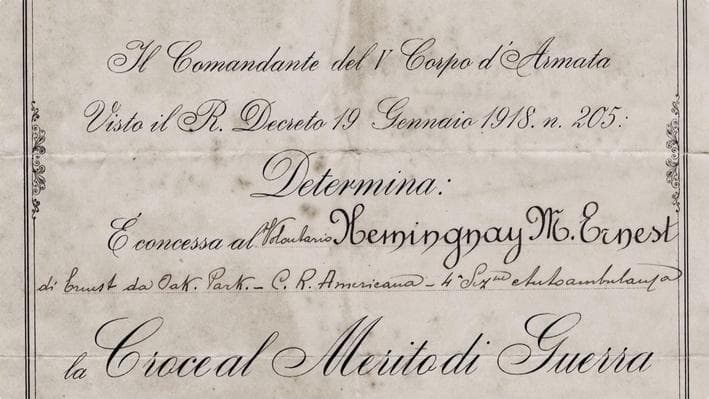 Il Comandante del V Corpo d'Armata
Visto il R. Decreto 19 Gennaio 1918. n. 205:
Determina:
È concessa al Volontario Hemingnay M. Ernest
di Ernest da Oak. Park. – C. R. Americana – 4ª Sezne Autoambulanza
la Croce al Merito di Guerra